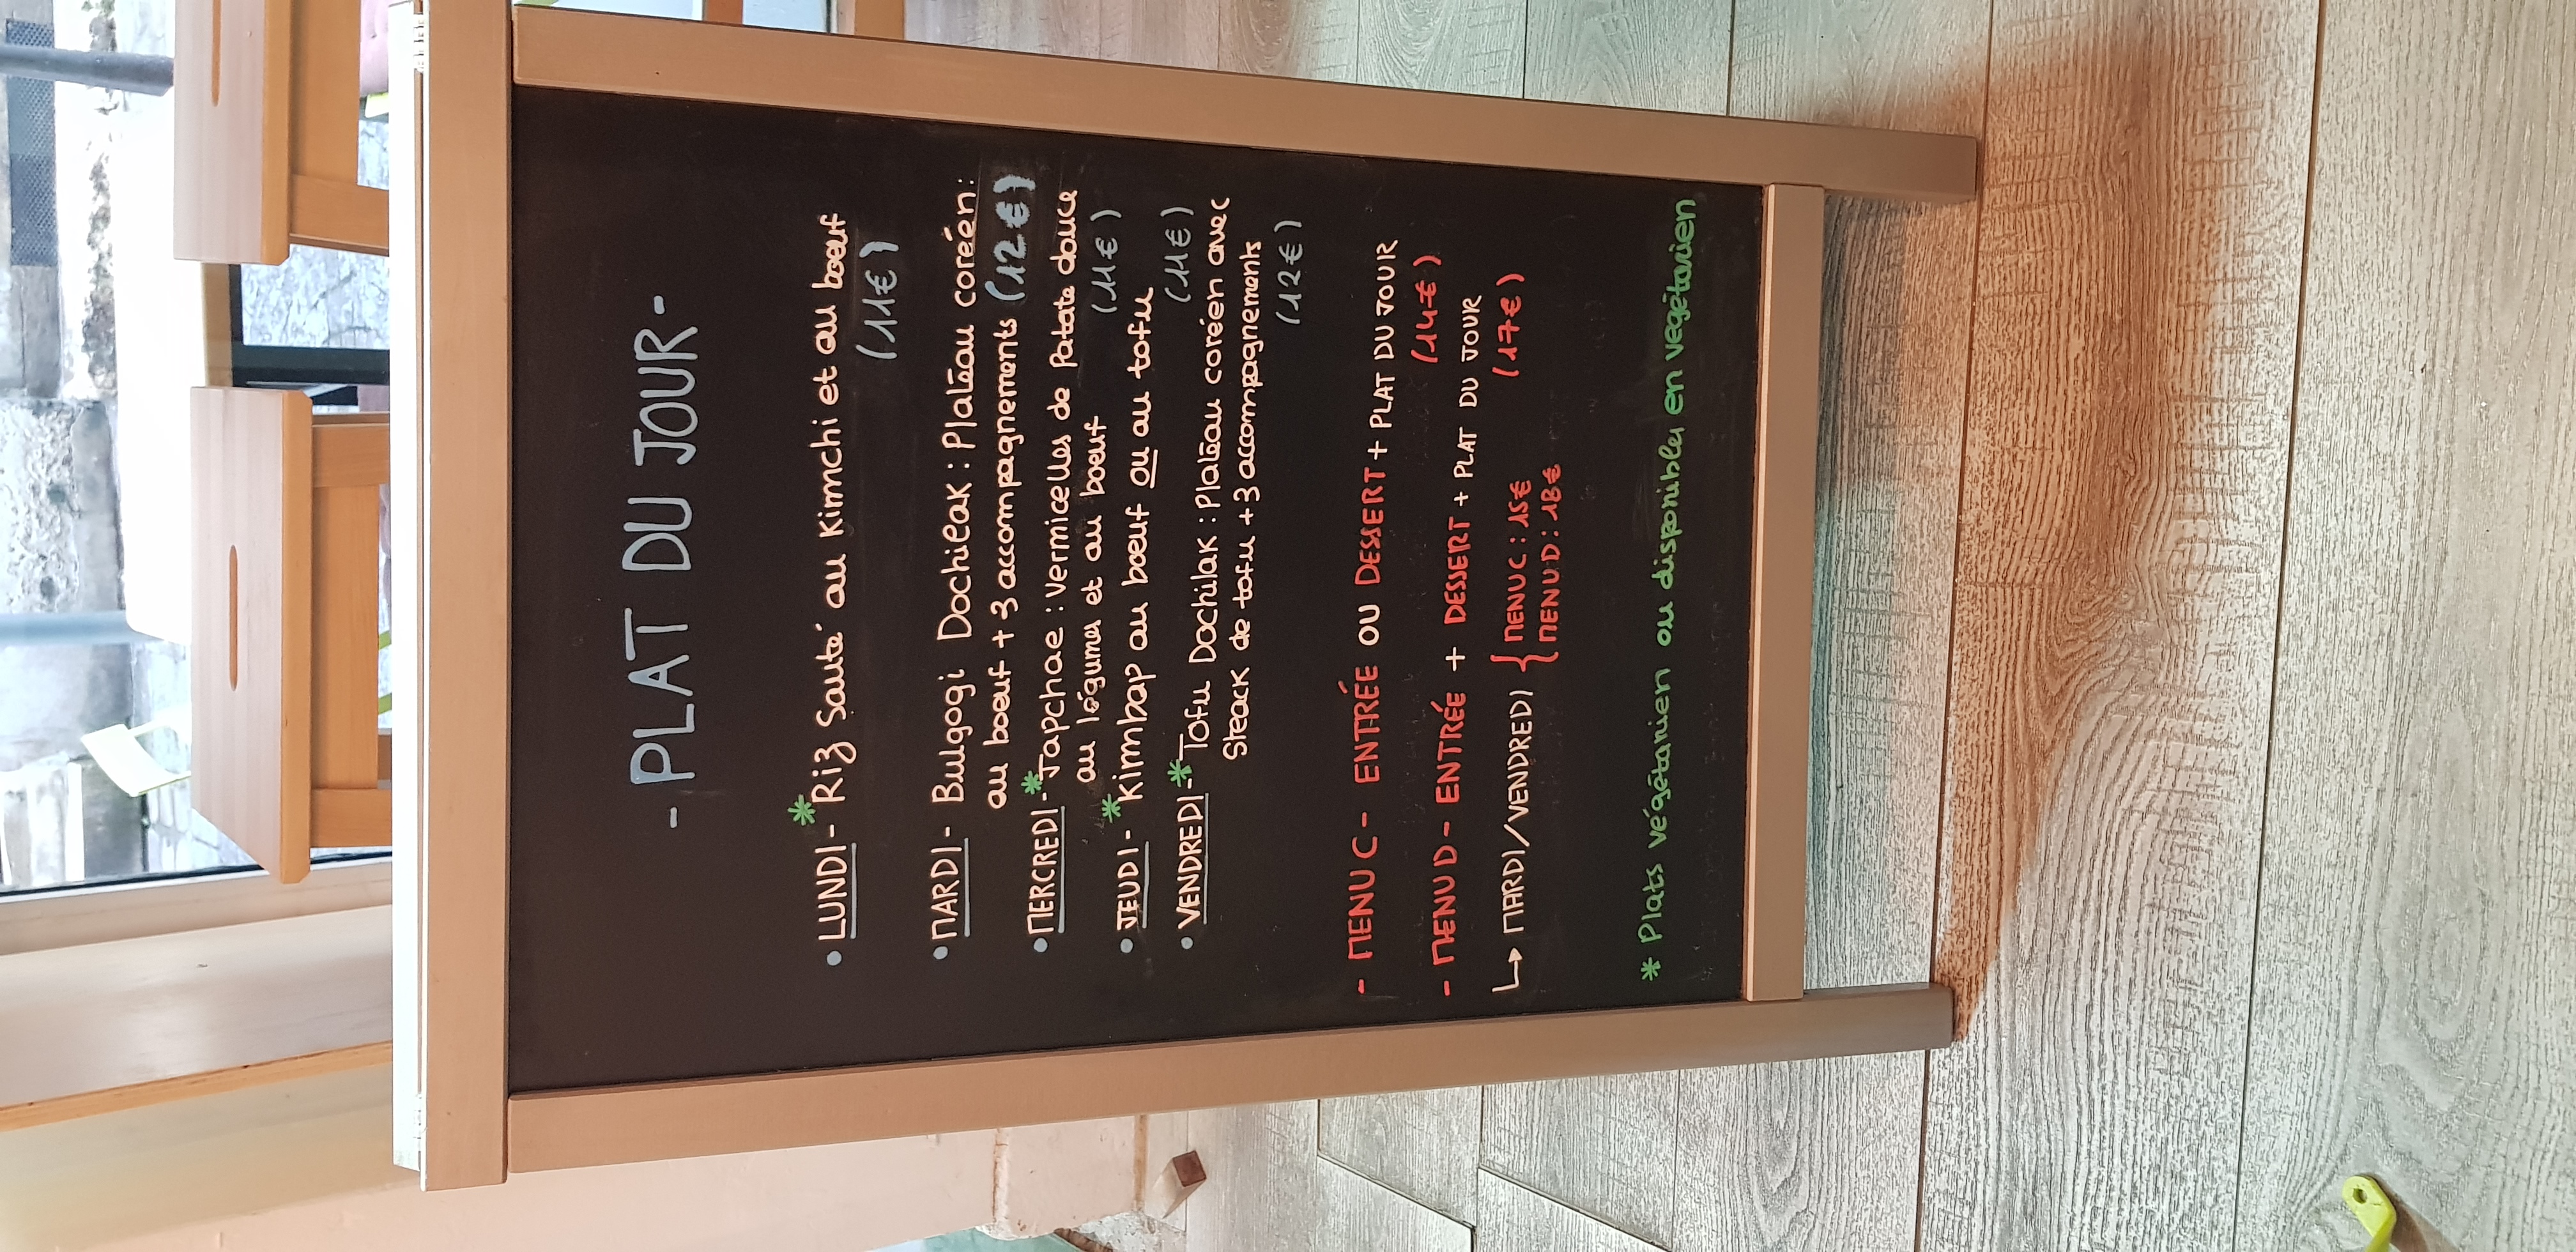 - PLAT DU JOUR -
• LUNDI - * Riz Sauté au Kimchi et au boeuf
(11€)
• MARDI - Bulgogi Dochileak : Plateau coréen :
au boeuf + 3 accompagnements (12€)
• MERCREDI - * Japchae : Vermicelles de Patate douce
au légumes et au boeuf (11€)
• JEUDI - * Kimbap au boeuf ou au tofu
(11€)
• VENDREDI - * Tofu Dochilak : Plateau coréen avec
Steack de tofu + 3 accompagnements
(12€)
- MENU C - ENTRÉE OU DESSERT + PLAT DU JOUR
(14€)
- MENU D - ENTRÉE + DESSERT + PLAT DU JOUR
(17€)
↳ MARDI/VENDREDI { MENU C : 15€
{ MENU D : 18€
* Plats végétarien ou disponibles en vegétarien